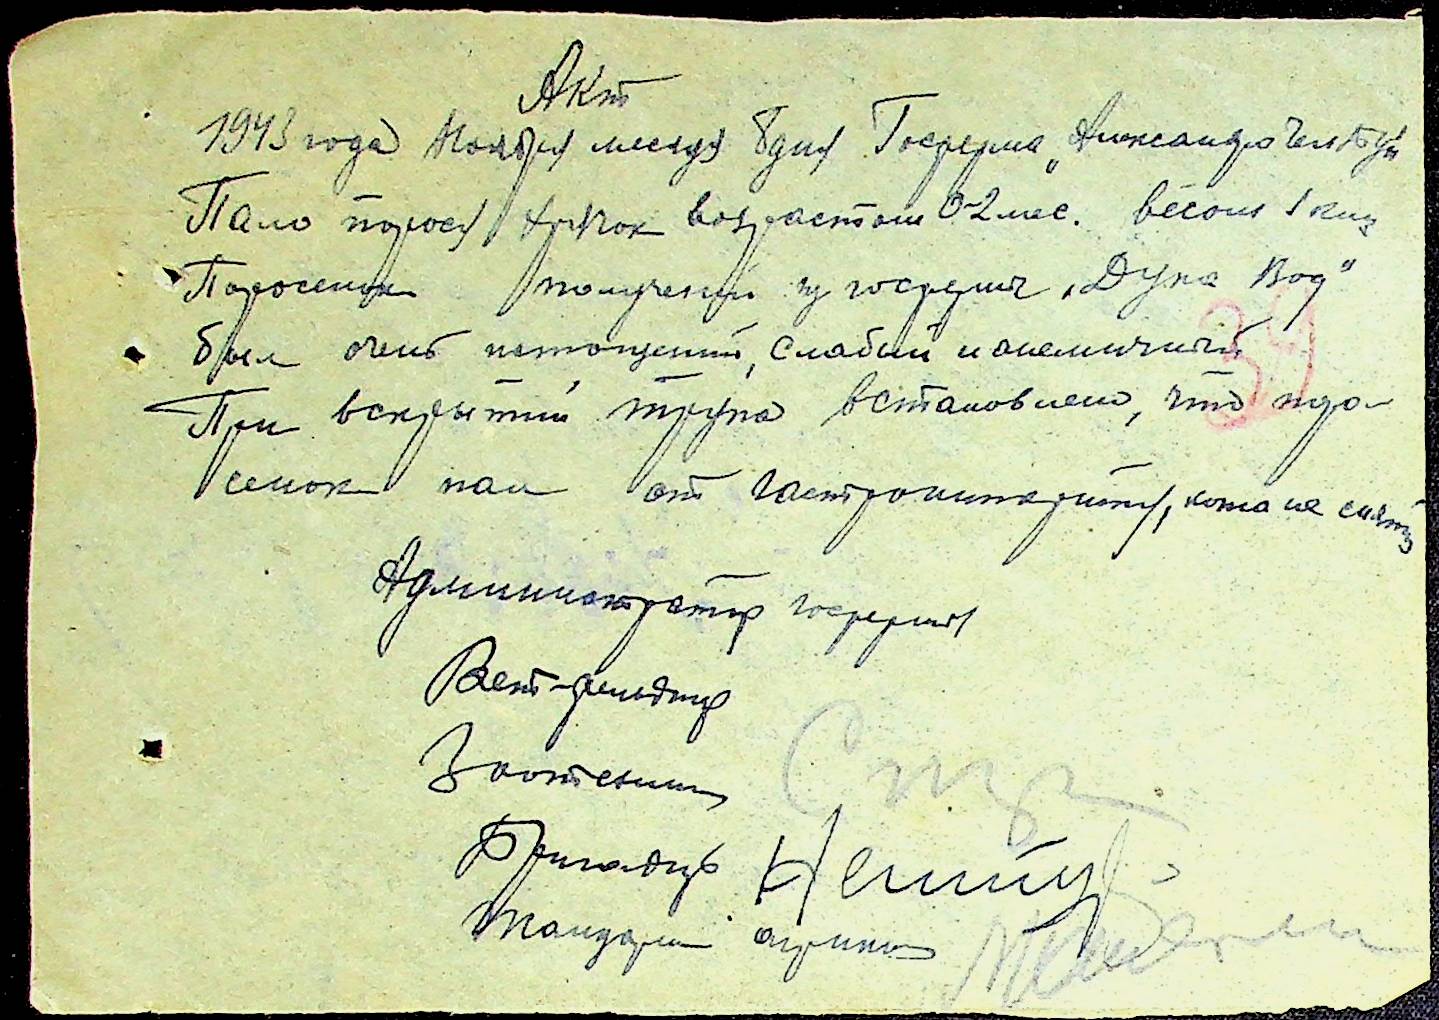 Акт
1943 года Ноября месяця 8 дня Госферма „Александрочел Буг"
Пало порося возрастом 0-2 мес. весом 1 клг
Поросенок полученый из госферми „Дука Вод"
был очень истощений, слабый и анемичный
При вскрытии трупа встановлено, что поро-
сенок пал от гастроэнтерита, кожа не снята
Администратор госфермы
Вет-фельдшер
Зоотехник
Бригадир
Жандарм агриколь
34